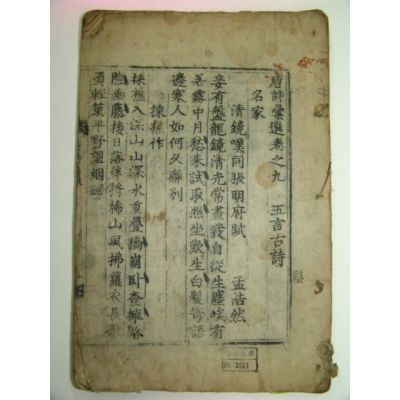 唐詩彙選卷之九 五言古詩
名家
清鏡嘆同張明府賦 孟浩然
妾有盤龍鏡清光常晝發自從生塵埃有
若霧中月愁來試取照坐歎生白髮寄語
邊塞人如何久離別
採樵作
採樵入深山山深水重疊橋崩臥査擁路
險垂藤接日落伴將稀山風拂蘿衣長歌
負輕策平野望烟歸